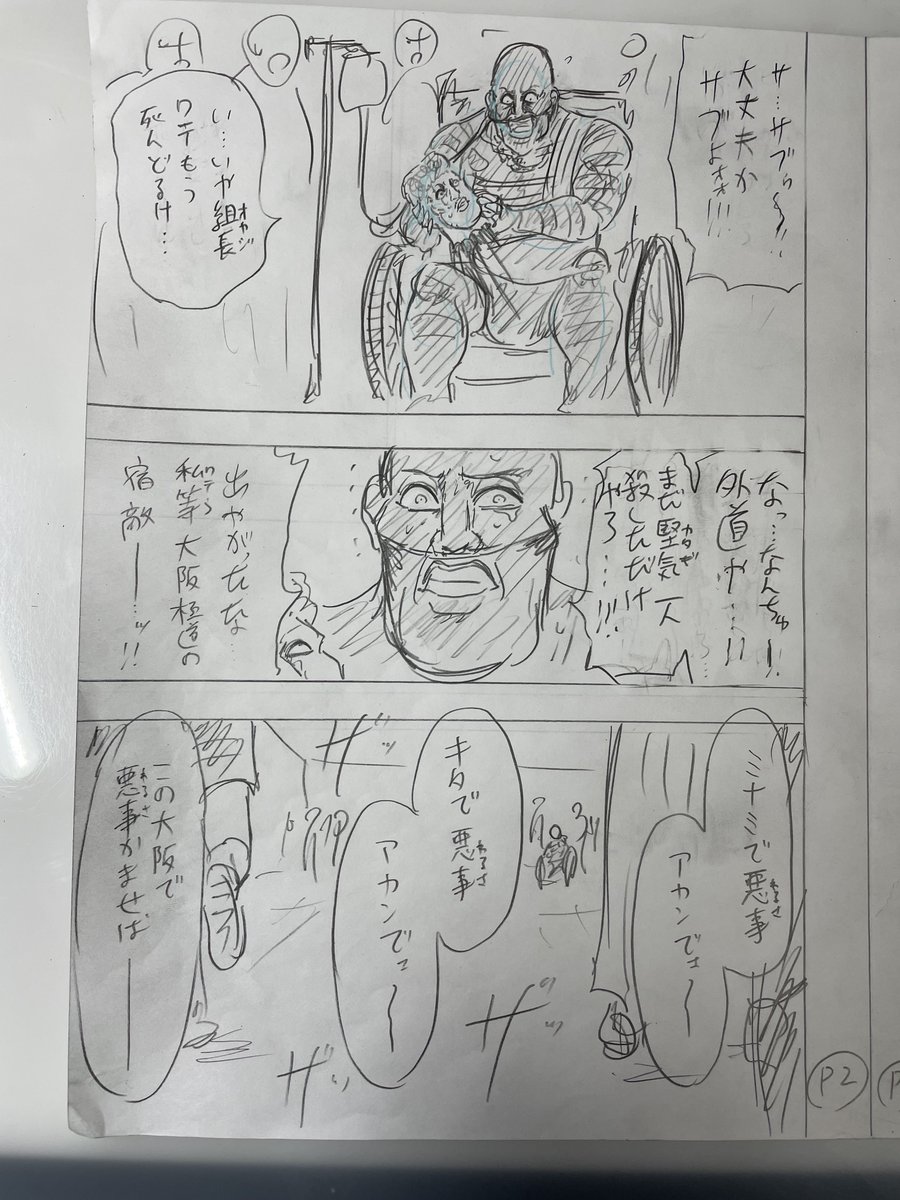 サ…サブゥ〜!!
大丈夫か
サブよォォ!!!
い…いや組長
オヤジ
ワテもう
死んどるけ…
なっ…なんちゅー
外道や…!!
まだ堅気一人
カタギ
殺しただけ
やろ…!!!
出やがったな…
私等大阪極道の
ワテら
宿敵ーーッ!!
ミナミで悪事
わるさ
アカンでェ〜
キタで悪事
わるさ
アカンでェ〜
この大阪で
悪事かませば――
わるさ
ザッ
ザッ
ザッ
P2